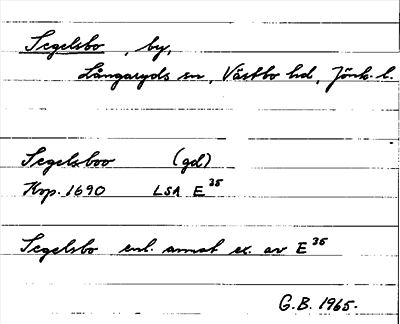 Segelsbo, by,
Långaryds sn, Västbo hd, Jönk. l.
Segelsboo (gd)
Kop. 1690 LSA E³⁵
Segelsbo enl. annat ex. av E³⁵
G.B. 1965.